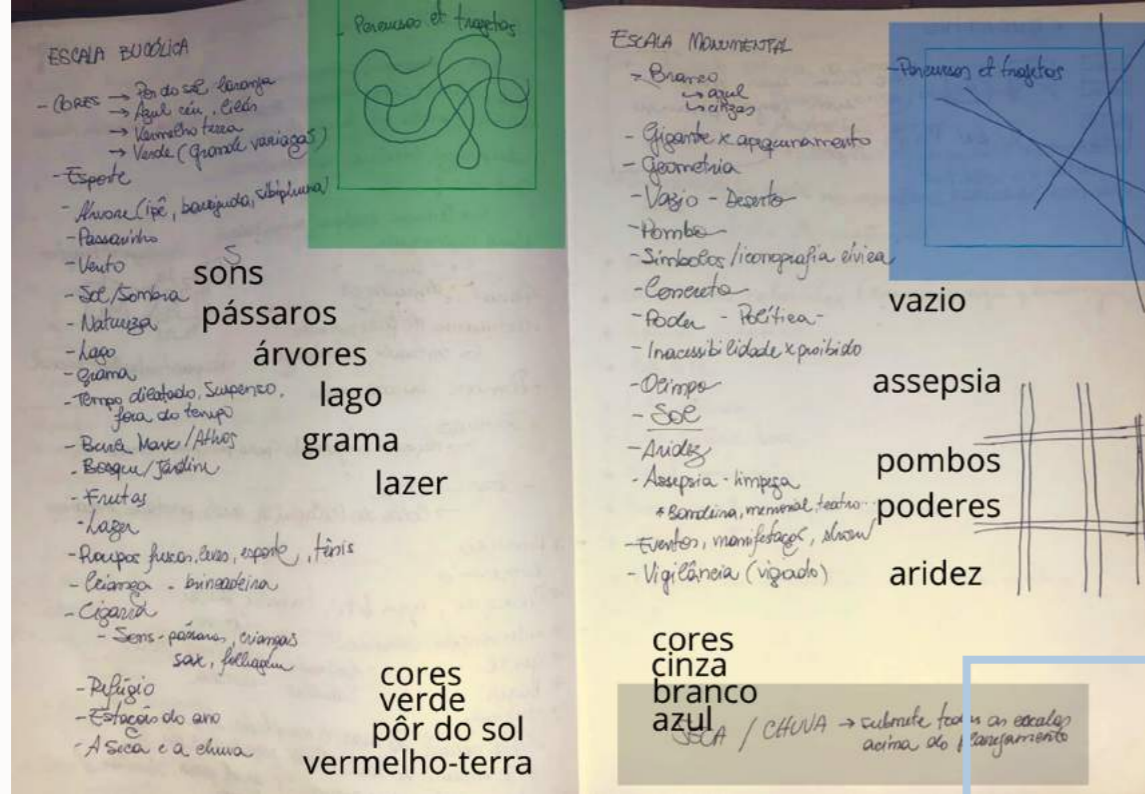 ESCALA BUCÓLICA
- CORES → Pôr do sol laranja
→ Azul céu, lilás
→ Vermelho terra
→ Verde (grande variação)
- Esporte
- Árvore (ipê, barriguda, sibipiruna)
- Passarinho
- Vento
- Sol/Sombra
- Natureza
- Lago
- Grama
- Tempo dilatado, suspenso,
fora do tempo
- Burle Marx/Athos
- Bosque/Jardim
- Frutas
- Lazer
- Roupas leves, esporte, tênis
- Criança - brincadeira
- Cigarra
- Sons - pássaros, crianças
sax, folhagem
- Refúgio
- Estações do ano
- A seca e a chuva
- Percursos et trajetos
S
sons
pássaros
árvores
lago
grama
lazer
cores
verde
pôr do sol
vermelho-terra
ESCALA MONUMENTAL
- Branco
↳ azul
↳ cinzas
- Gigante x apequenamento
- Geometria
- Vazio - Deserto
- Pombo
- Símbolos/iconografia cívica
- Concreto
- Poder - Política -
- Inacessibilidade x proibido
- Olimpo
- SOL
- Aridez
- Assepsia - limpeza
* Bandeira, memorial, teatro...
- Eventos, manifestações, show
- Vigilância (vigiado)
- Percursos et trajetos
vazio
assepsia
pombos
poderes
aridez
cores
cinza
branco
azul
SECA / CHUVA → submete todas as escalas
acima do planejamento